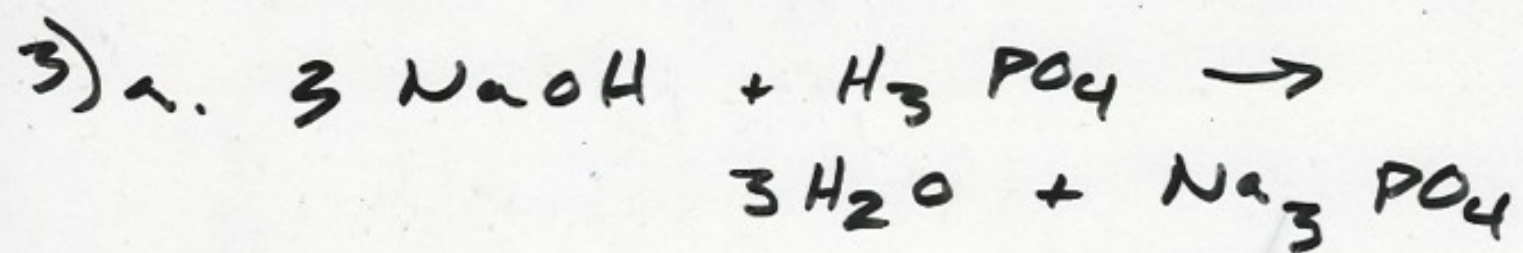 3) a. 3 NaOH + H₃ PO₄ →
3 H₂O + Na₃ PO₄